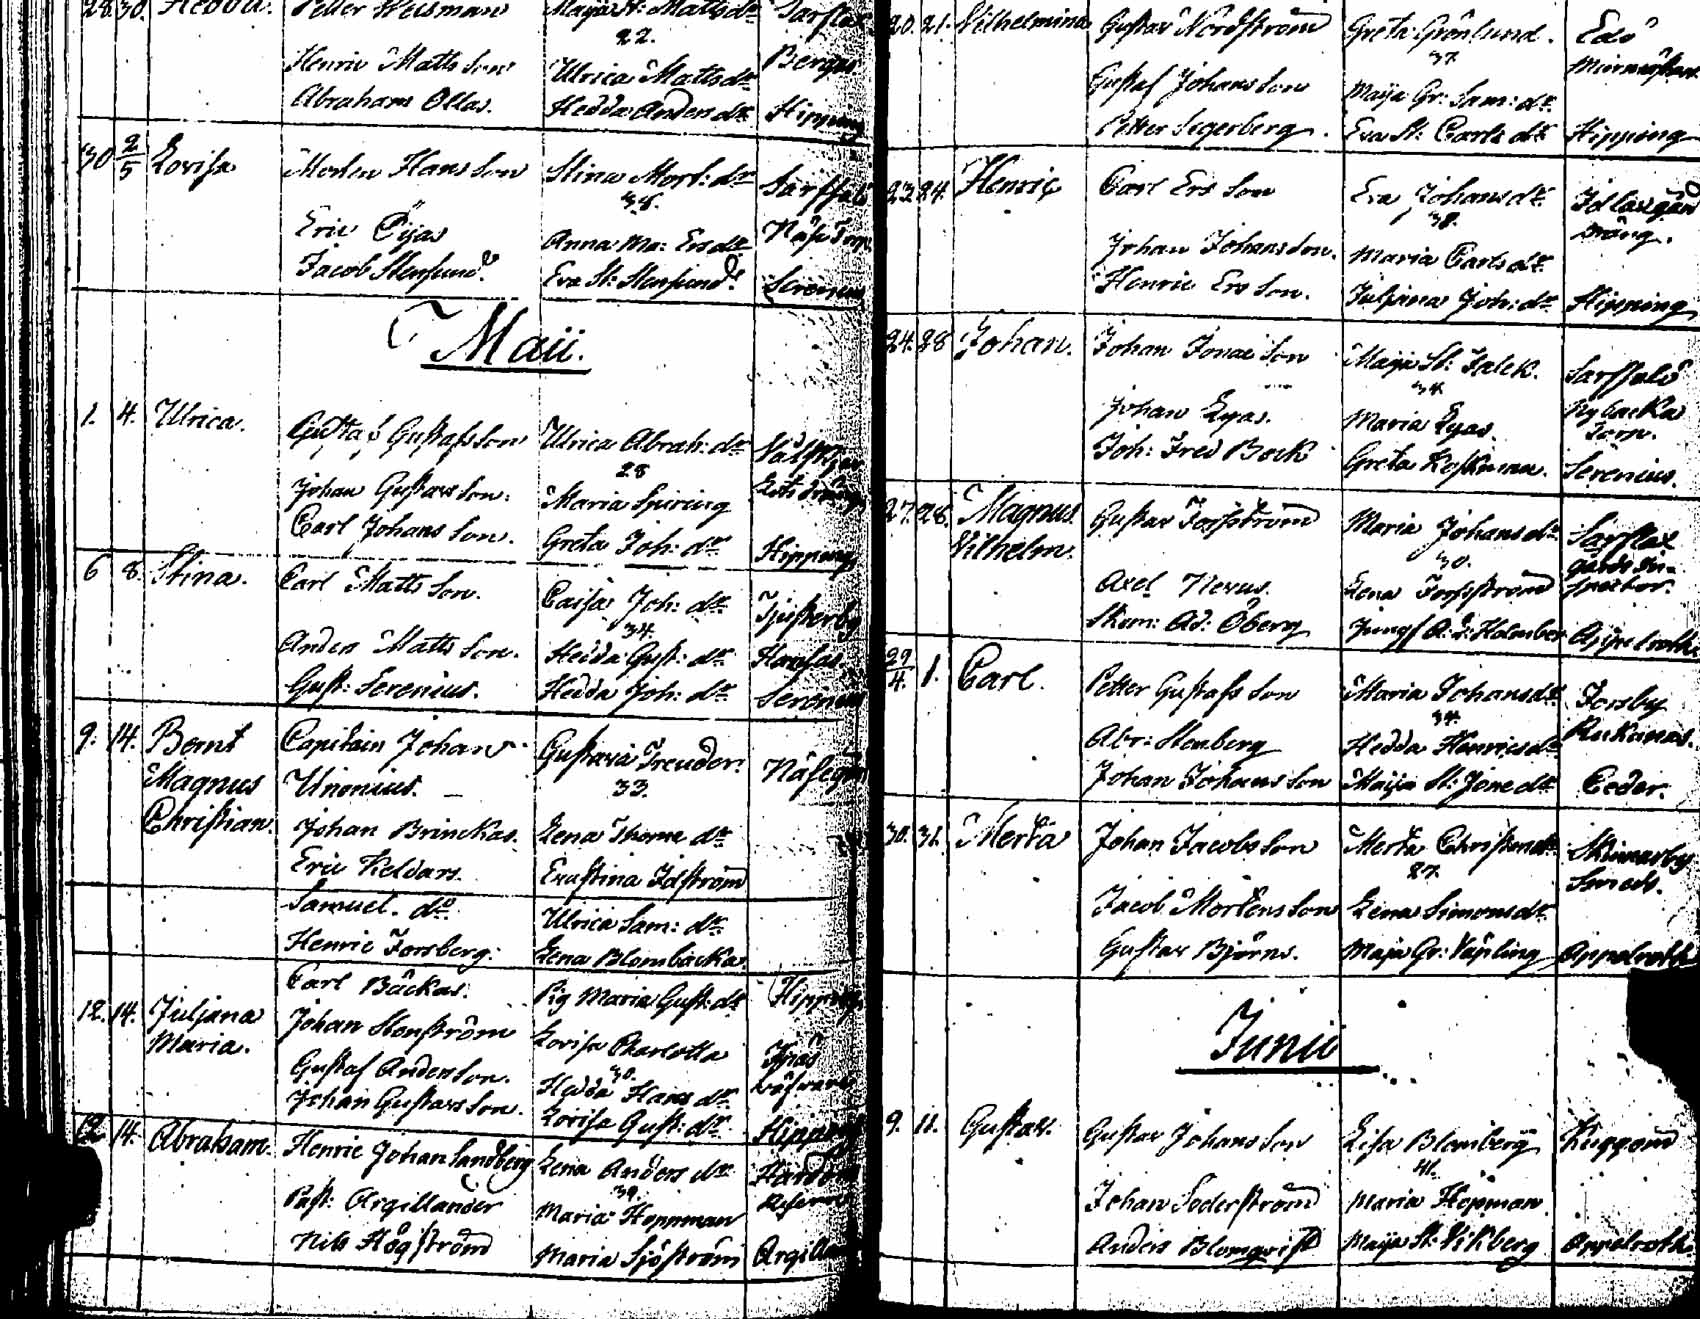 28. 30. Hedda. Petter Helsman Maija St: Matts dr Sarflax
22.
Henric Matts Son Ulrica Matts dr Bergas
Abraham Ollas. Hedda Anders dr Hipping
30 2/5 Lovisa Morten Hans Son Stina Mort: dr Sarfsalö
38.
Eric Öijas Anna Ma: Ers dr Näse Torp
Jacob Stensund. Eva St: Stensund. Serenius
Maii.
1. 4. Ulrica. Gustaf Gustafsson Ulrica Abrah: dr
28
Johan Gustavsson: Maria Spiring
Carl Johans Son. Greta Joh: dr Hipping
6 8. Stina. Carl Matts Son. Caisa Joh: dr Tjusterby
34.
Anders Matts Son. Hedda Gust: dr Hansas
Gust: Serenius. Hedda Joh: dr Serenius
9. 14. Bernt Capitain Johan Gustava Treuder: Näsegård
Magnus Unonius. 33.
Christian. Johan Brinckas. Lena Thome dr
Eric Keldars. Eva Stina Idström
Samuel. do Ulrica Sam: dr
Henric Forsberg: Lena Blombacka
Carl Bäckas. Pig Maria Gust: dr Hipping
12. 14. Juljana Johan Stenström Lovisa Charlotta
Maria. 30.
Gustaf Anderson. Hedda Hans dr
Johan Gustavsson. Lovisa Gust: dr Hipping
12 14. Abraham. Henric Johan Sandberg Lena Anders dr Hardom
39.
Past: Argillander Maria Hoppman
Nils Högström Maria Sjöström Argillander
20. 21. Vilhelmina Gustav Nordström Greta Grönlund. Edö
37.
Gustaf Johans Son Maija Gr: Sam: dr
Petter Segerberg. Eva St: Carls dr Hipping
23. 24. Henric Carl Ers Son Eva Johans dr Idlaxgård
38. dräng.
Johan Johansson. Maria Carls dr
Henric Ers Son. Juljana Joh: dr Hipping
24. 28 Johan. Johan Jonae Son Maija St: Falck. Sarfsalö
34.
Johan Lyas. Maria Lyas. Nybacka
Torp.
Joh: Fred Bock Greta Koskman. Serenius.
27. 28. Magnus Gustav Forsström Maria Johans dr Sarflax
Vilhelm. 30. gårds In-
Axel Nexus. Lena Forsström spector.
Skom: Ad: Öberg Jungf A: d: Holmber Appelroth
29/4. 1. Carl. Petter Gustafs Son Maria Johans dr Forsby
34.
Abr: Stenberg Hedda Henrics dr Kukanas.
Johan Johansson Maija St: Jone dr Ceder.
30. 31. Merta Johan Jacobs Son Merta Christen dr Skinnarby
27. Smeds.
Jacob Mortens Son Lena Simons dr
Gustav Björns. Maja Gr: Väpling Appelroth
Junii
9. 11. Gustav. Gustav Johans Son Lisa Blomberg Kuggom
41.
Johan Söderström Maria Höpman.
Anders Blomqvist Maija St: Vikberg Appelroth